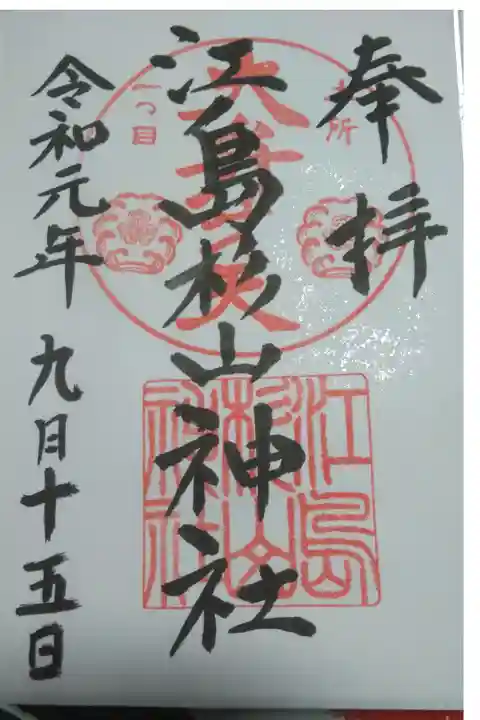 奉拝
本所
一つ目
美才天
江島杉山神社
江島
杉山
神社
令和元年 九月十五日